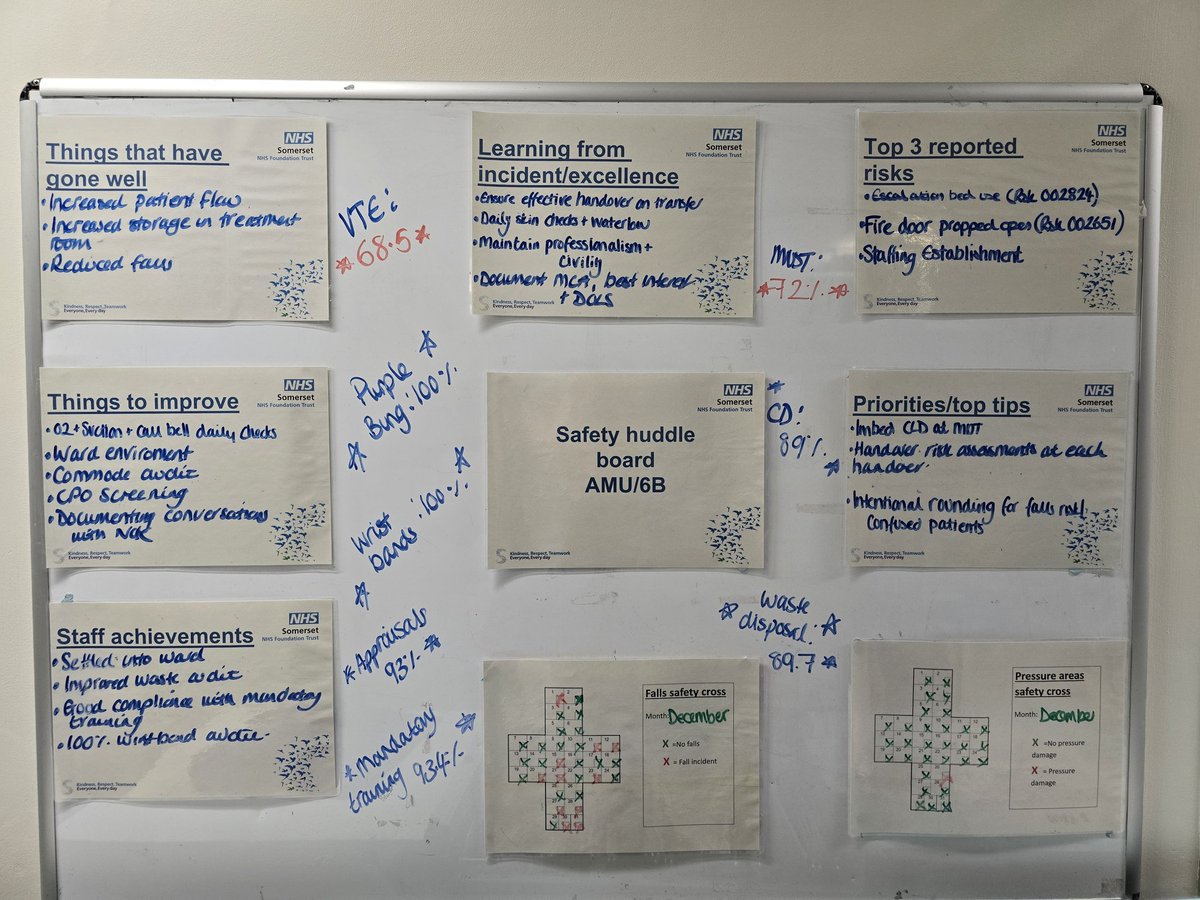 Things that have
gone well
NHS
Somerset
NHS Foundation Trust
•Increased patient flow.
•Increased storage in treatment
room
•Reduced falls
Kindness, Respect, Teamwork
Everyone, Every day
VTE:
68.5
Learning from
incident/excellence
NHS
Somerset
NHS Foundation Trust
•Ensure effective handover on transfer
•Daily skin checks + waterlow
•Maintain professionalism +
civility
•Document MCA, best interest
+ DOLS
Kindness, Respect, Teamwork
Everyone, Every day
MUST:
72%
Top 3 reported
risks
NHS
Somerset
NHS Foundation Trust
•Escalation bed use (Risk 002824)
•Fire door propped open (Risk 002651)
•Staffing Establishment
Kindness, Respect, Teamwork
Everyone, Every day
Things to improve
NHS
Somerset
NHS Foundation Trust
•O2 + Suction + call bell daily checks
•Ward enviroment
•Commode audit
•CPO Screening
•Documenting conversations
with NOK
Kindness, Respect, Teamwork
Everyone, Every day
Purple
Bung: 100%
Wrist
bands: 100%
Safety huddle
board
AMU/6B
NHS
Somerset
NHS Foundation Trust
Kindness, Respect, Teamwork
Everyone, Every day
CD:
89%
Priorities/top tips
NHS
Somerset
NHS Foundation Trust
•Imbed CLD at MDT
•Handover risk assessments at each
handover.
•Intentional rounding for falls risk/
Confused patients
Kindness, Respect, Teamwork
Everyone, Every day
Staff achievements
NHS
Somerset
NHS Foundation Trust
•Settled into ward
•Improved waste audit
•Good compliance with mandatory
training
•100% wristband audit
Kindness, Respect, Teamwork
Everyone, Every day
Appraisals
93%
Mandatory
training 93.4%
Waste
disposal:
89.7
Falls safety cross
Month: December
X =No falls
X = Fall incident
Pressure areas
safety cross
Month: December
X =No pressure
damage
X = Pressure
damage